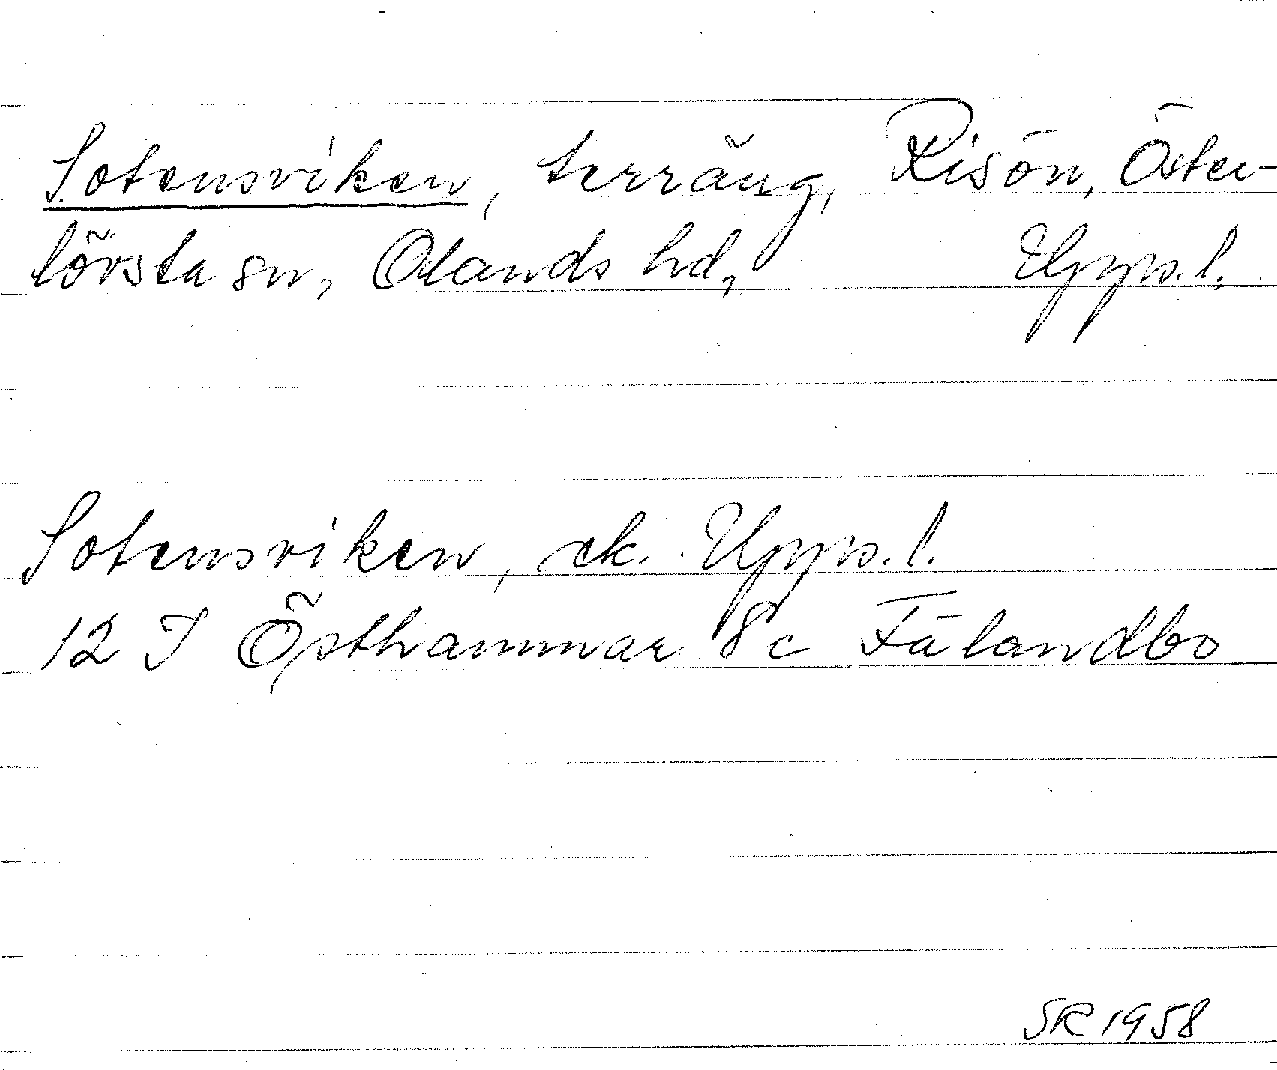 Sotensviken, terräng, Risön, Öster-
lövsta sn, Olands hd, Upps.l.
Sotensviken, ek. Upps.l.
12 I Östhammar 8c Fälandbo
SR 1958